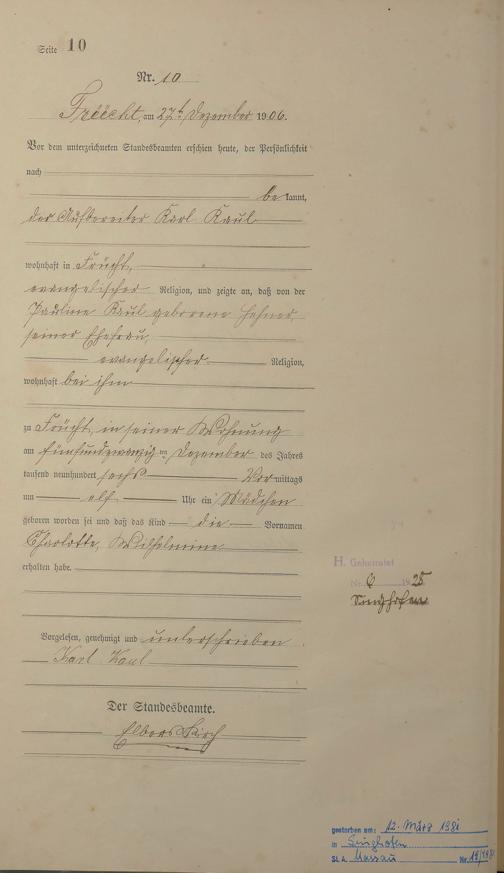 Seite 10
Nr. 10
Früecht, am 27t Dezember 1906.
Vor dem unterzeichneten Standesbeamten erschien heute, der Persönlichkeit
nach
bekannt,
der Aufbereiter Karl Kaul
wohnhaft in Frücht,
evangelischer Religion, und zeigte an, daß von der
Pauline Kaul geborene Hehner
seiner Ehefrau,
evangelischer Religion,
wohnhaft bei ihm
zu Frücht, in seiner Wohnung
am fünfundzwanzigten Dezember des Jahres
tausend neunhundert sechs Vormittags
um elf Uhr ein Mädchen
geboren worden sei und daß das Kind die Vornamen
Charlotte, Wilhelmine
erhalten habe.
H. Geheiratet
Nr. 6 1928
Singhofen
Vorgelesen, genehmigt und unterschrieben
Karl Kaul
Der Standesbeamte.
Elberskirch
gestorben am: 12. März 1981
in Singhofen
St. A. Nassau Nr. 19/1981